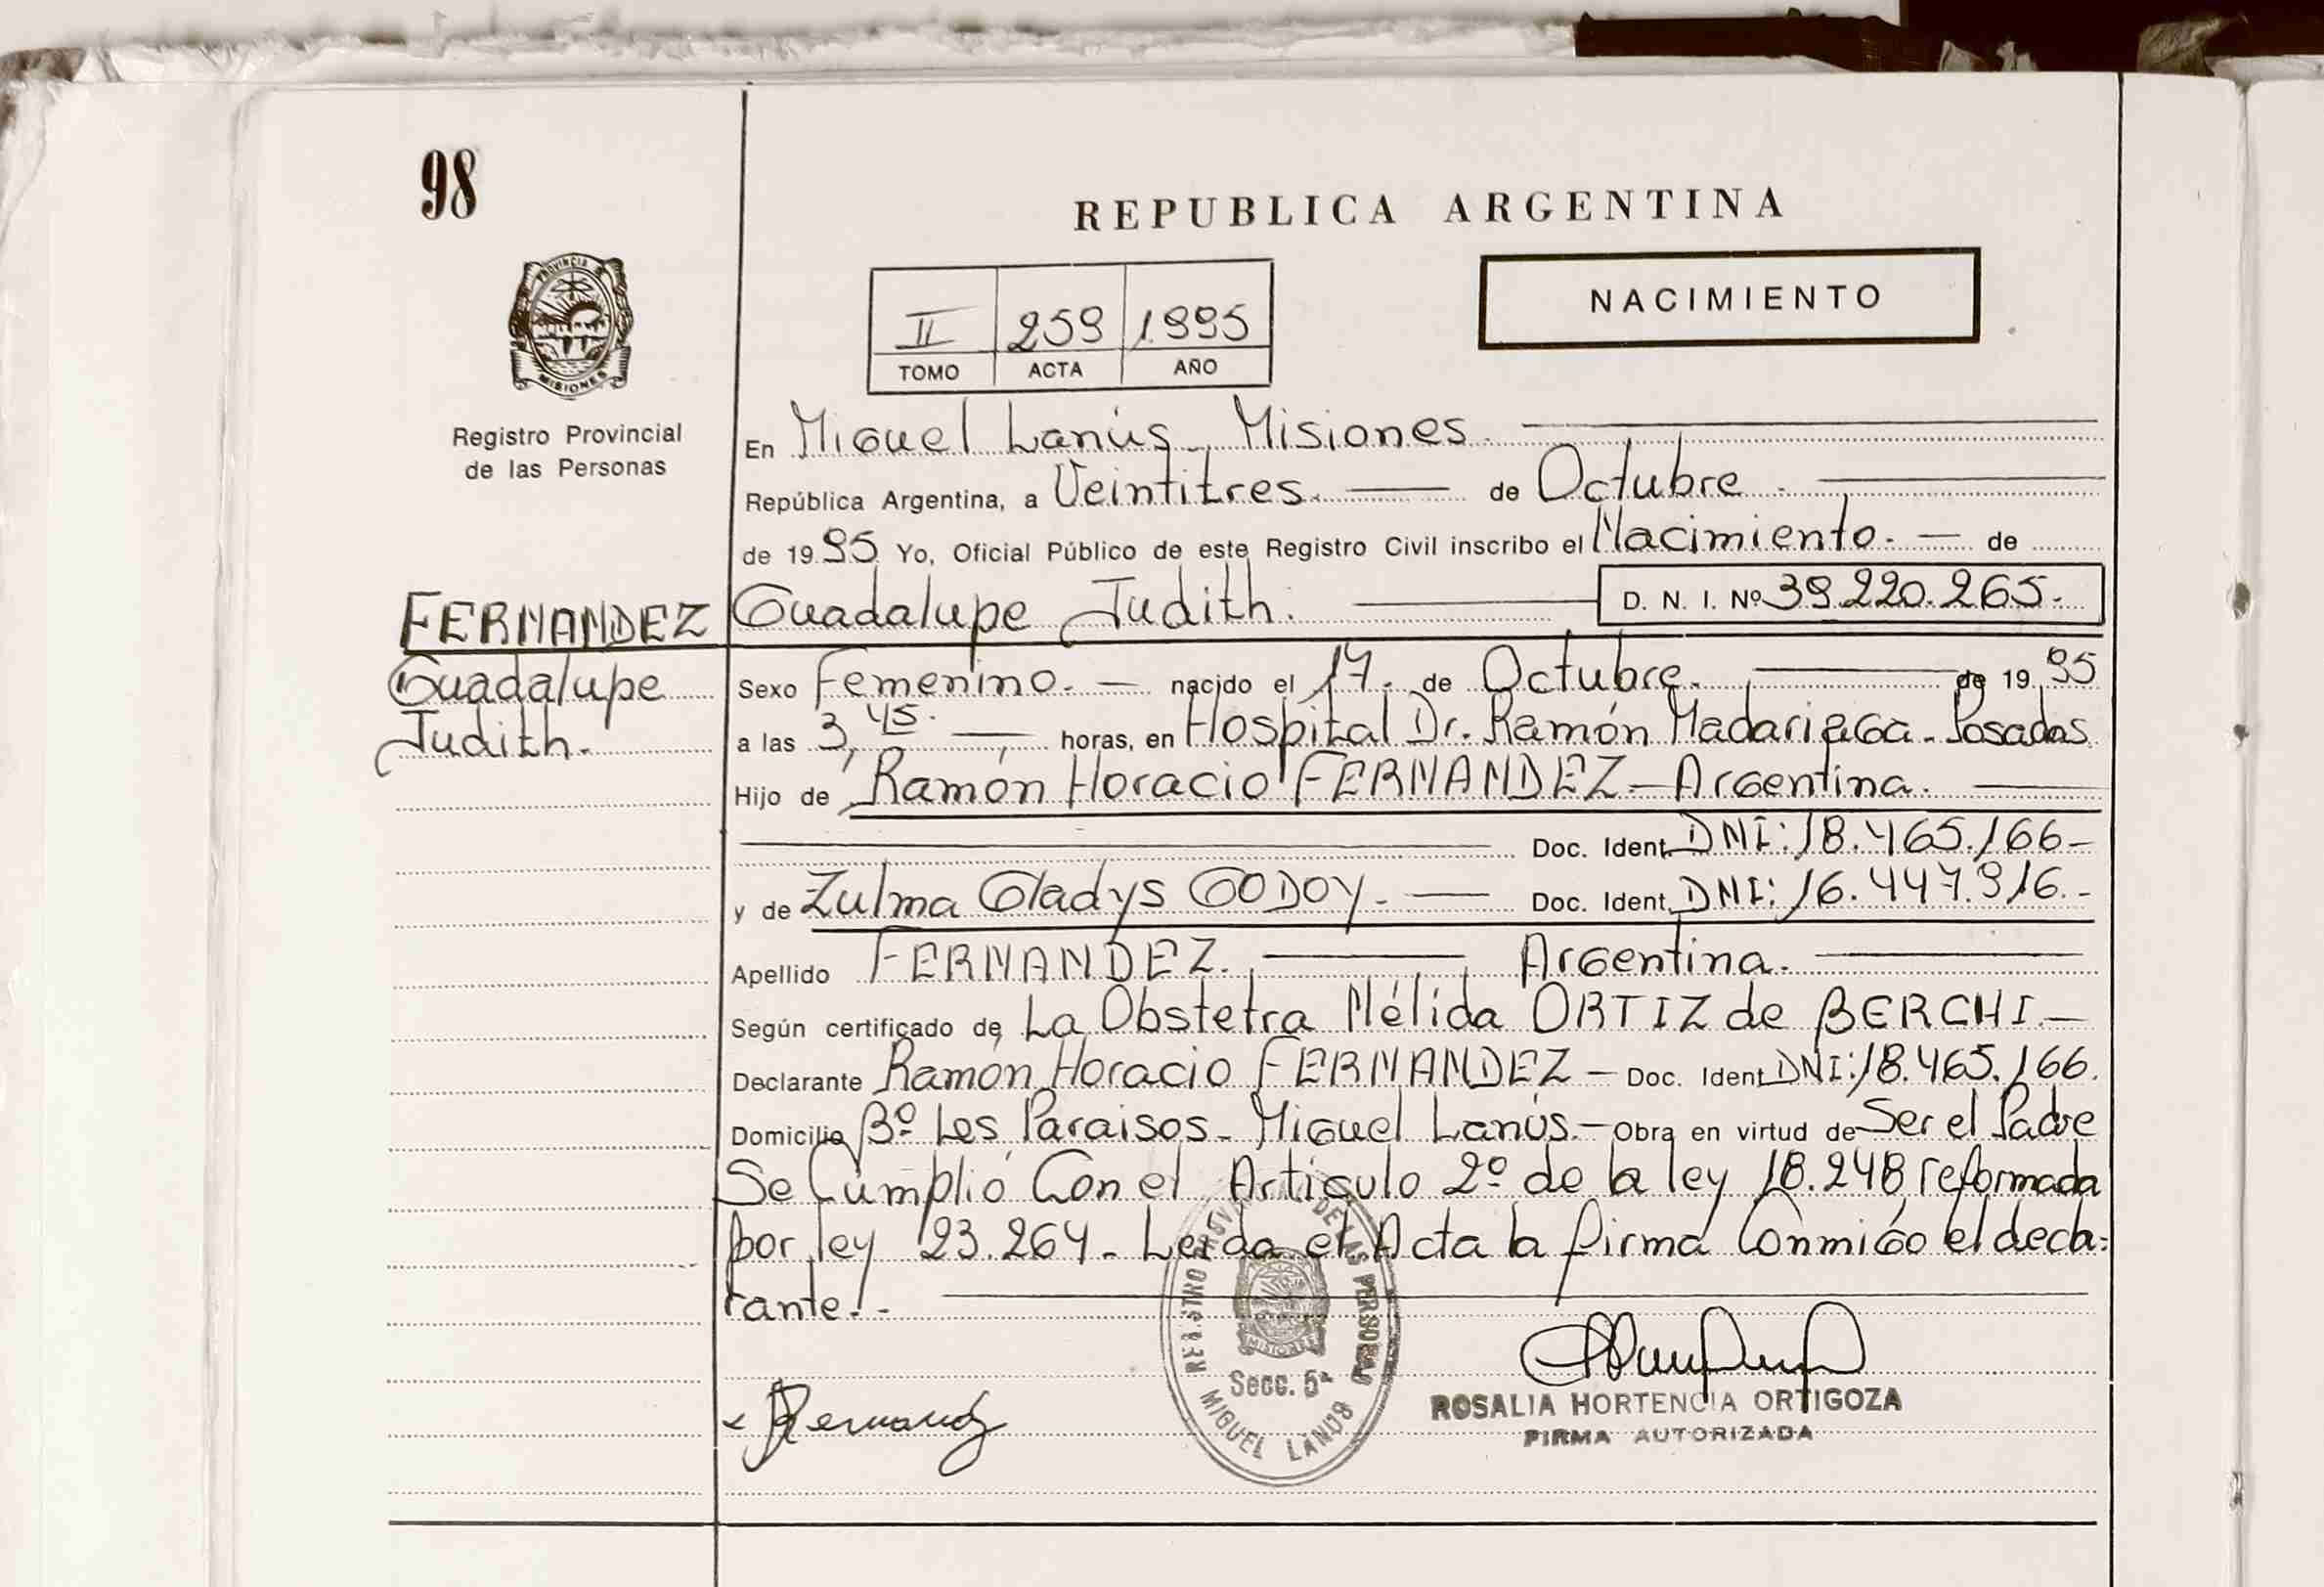 98
REPUBLICA ARGENTINA
PROVINCIA DE
MISIONES
NACIMIENTO
II 259 1.995
TOMO ACTA AÑO
Registro Provincial
de las Personas
En Miguel Lanús - Misiones.
República Argentina, a Veintitres. de Octubre.
de 1995 Yo, Oficial Público de este Registro Civil inscribo el Nacimiento. - de
FERNANDEZ Guadalupe Judith. D. N. I. Nº 39.220.265.-
Guadalupe
Judith.
Sexo Femenino. - nacido el 17. de Octubre. de 1995
a las 3,45. horas, en Hospital Dr. Ramón Madariaga - Posadas
Hijo de Ramón Horacio FERNANDEZ - Argentina.
Doc. Ident. DNI: 18.465.166-
y de Zulma Gladys GODOY. - Doc. Ident. DNI: 16.447.916.-
Apellido FERNANDEZ. Argentina.
Según certificado de La Obstetra Nélida ORTIZ de BERCHI.-
Declarante Ramón Horacio FERNANDEZ - Doc. Ident. DNI: 18.465.166.
Domicilio Bº Los Paraisos - Miguel Lanús.- Obra en virtud de Ser el Padre
Se Cumplió Con el Articulo 2º de la ley 18.248 reformada
por ley 23.264 - Leída el Acta la firma Conmigo el decla=
rante.-
REGISTRO PROVINCIAL DE LAS PERSONAS
MISIONES
Secc. 5ª
MIGUEL LANUS
ROSALIA HORTENCIA ORTIGOZA
FIRMA AUTORIZADA